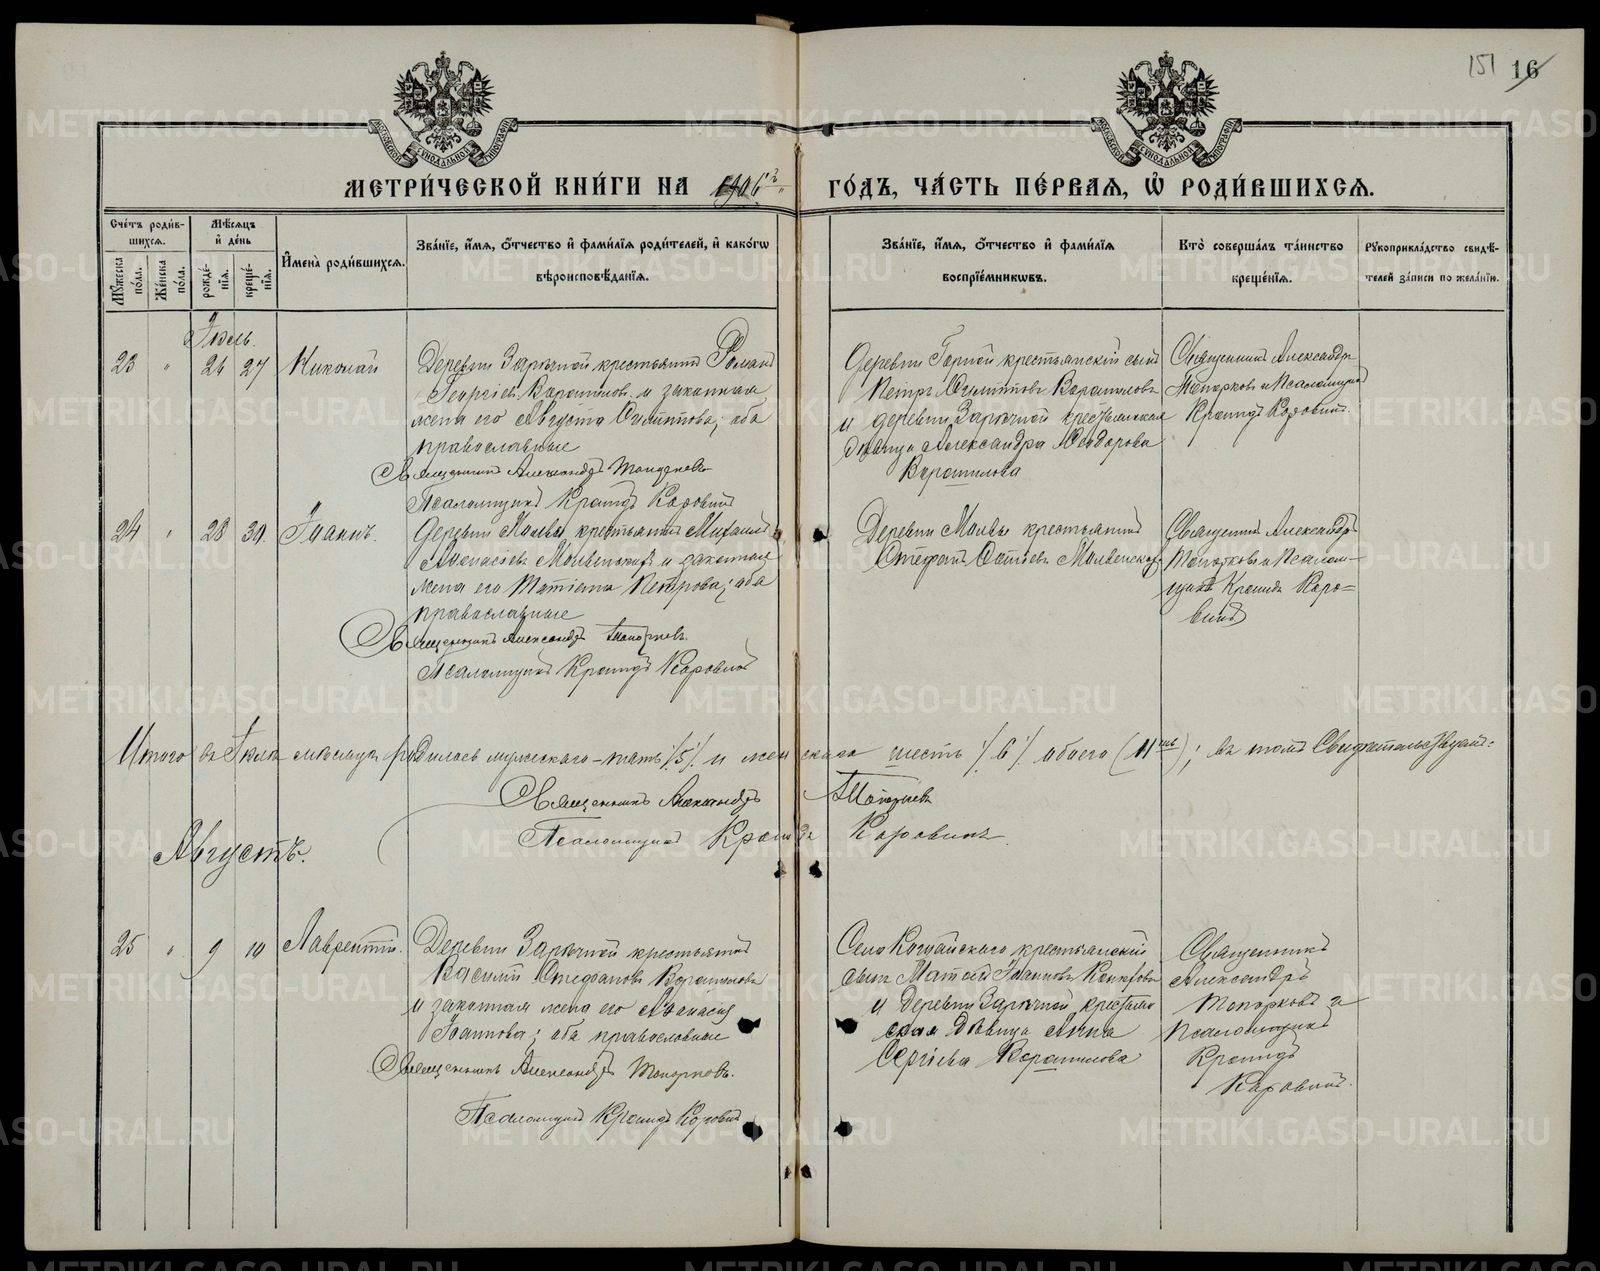 151 16
МОСКОВСКОЙ СУНОДАЛЬНОЙ ТИПОГРАФІИ
МОСКОВСКОЙ СУНОДАЛЬНОЙ ТИПОГРАФІИ
МЕТРИ́ЧЕСКОЙ КНИ́ГИ НА 1906 г. ГО́ДЪ, ЧА́СТЬ ПЕ́РВАЯ, Ѡ РОДИ́ВШИХСЯ.
Сче́тъ роди́в-
шихся.
Мѣ́сяцъ
и де́нь
Мꙋ́жеска
по́ла.
Же́нска
по́ла.
рожде́-
нїя.
креще́-
нїя.
И҆мена̀ роди́вшихся.
Зва́нїе, и҆́мя, ѻ҆́тчество и҆ фами́лїя роди́телей, и҆ како́гѡ
вѣроисповѣ́данїя.
Зва́нїе, и҆́мя, ѻ҆́тчество и҆ фами́лїя
воспрїе́мникѡвъ.
Кто̀ соверша́лъ та́инство
креще́нїя.
Рꙋкоприкла́дство свидѣ́-
телей за́писи по жела́нїю.
Іюль.
23 " 26 27 Николай
Деревни Зарѣчной крестьянинъ Романъ
Георгіевъ Ворошиловъ и законная
жена его Августа Филиппова; оба
православные
Священникъ Александръ Топорковъ
Псаломщикъ Кронидъ Коровинъ
Деревни Горной крестьянскій сынъ
Петръ Филипповъ Ворошиловъ
и деревни Зарѣчной крестьянская
дѣвица Александра Ѳеодорова
Ворошилова
Священникъ Александръ
Топорковъ и Псаломщикъ
Кронидъ Коровинъ.
24 " 28 30. Іоаннъ.
Деревни Молвы крестьянинъ Михаилъ
Аѳанасіевъ Молвинскихъ и законная
жена его Татіана Петрова; оба
православные
Священникъ Александръ Топорковъ.
Псаломщикъ Кронидъ Коровинъ
Деревни Молвы крестьянинъ
Стефанъ
Священникъ Александръ
Топорковъ и Псалом-
щикъ Кронидъ Коро-
винъ
Итого въ Іюлѣ мѣсяцѣ родилось мужескаго - пять /5/ и женскаго шесть /6/ обоего (11ть); въ томъ Свидѣтельствуютъ:
Священникъ Александръ Топорковъ
Псаломщикъ Кронидъ Коровинъ.
Августъ.
25 " 9 10 Лаврентій.
Деревни Зарѣчной крестьянинъ
Василій Стефановъ Ворошиловъ
и законная жена его Аѳанасія
Іоаннова; оба православные
Священникъ Александръ Топорковъ.
Псаломщикъ Кронидъ Коровинъ
Село крестьянскій
сынъ Матѳей Іоанновъ
и Деревни Зарѣчной крестьян-
ская дѣвица Анна
Сергіева Ворошилова
Священникъ
Александръ
Топорковъ и
Псаломщикъ
Кронидъ
Коровинъ.
METRIKI.GASO-URAL.RU